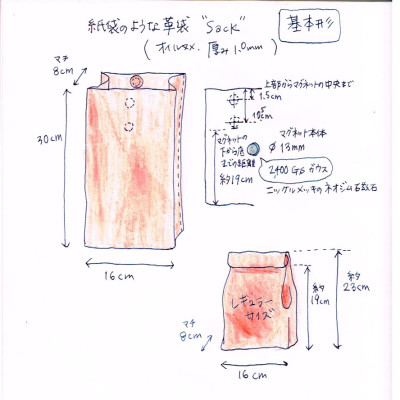 紙袋のような革袋 "Sack"
基本形
(オイルヌメ. 厚み1.0mm)
マチ
8cm
30cm
16cm
上部からマグネットの中央まで
1.5cm
マグネットの
下から底
までの距離
約19cm
マグネット本体
φ 13mm
2,400 GS ガウス
ニッケルメッキのネオジム石
レギュラー
サイズ
マチ
8cm
16cm
約
19cm
約
23cm